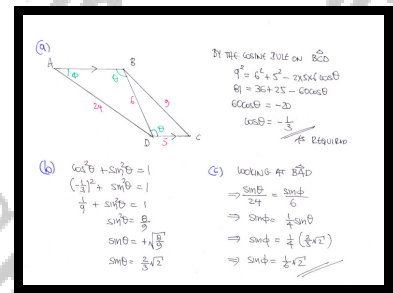 (a)
A
ϕ
B
θ
24
6
9
θ
D
5
C
BY THE COSINE RULE ON BĈD
9² = 6² + 5² - 2×5×6cosθ
81 = 36 + 25 - 60cosθ
60cosθ = -20
cosθ = -1/3
AS REQUIRED
(b)
cos²θ + sin²θ = 1
(-1/3)² + sin²θ = 1
1/9 + sin²θ = 1
sin²θ = 8/9
sinθ = +√(8/9)
sinθ = 2/3√2
(c) LOOKING AT BÂD
⇒ sinθ/24 = sinϕ/6
⇒ sinϕ = 1/4 sinθ
⇒ sinϕ = 1/4 (2/3√2)
⇒ sinϕ = 1/6√2